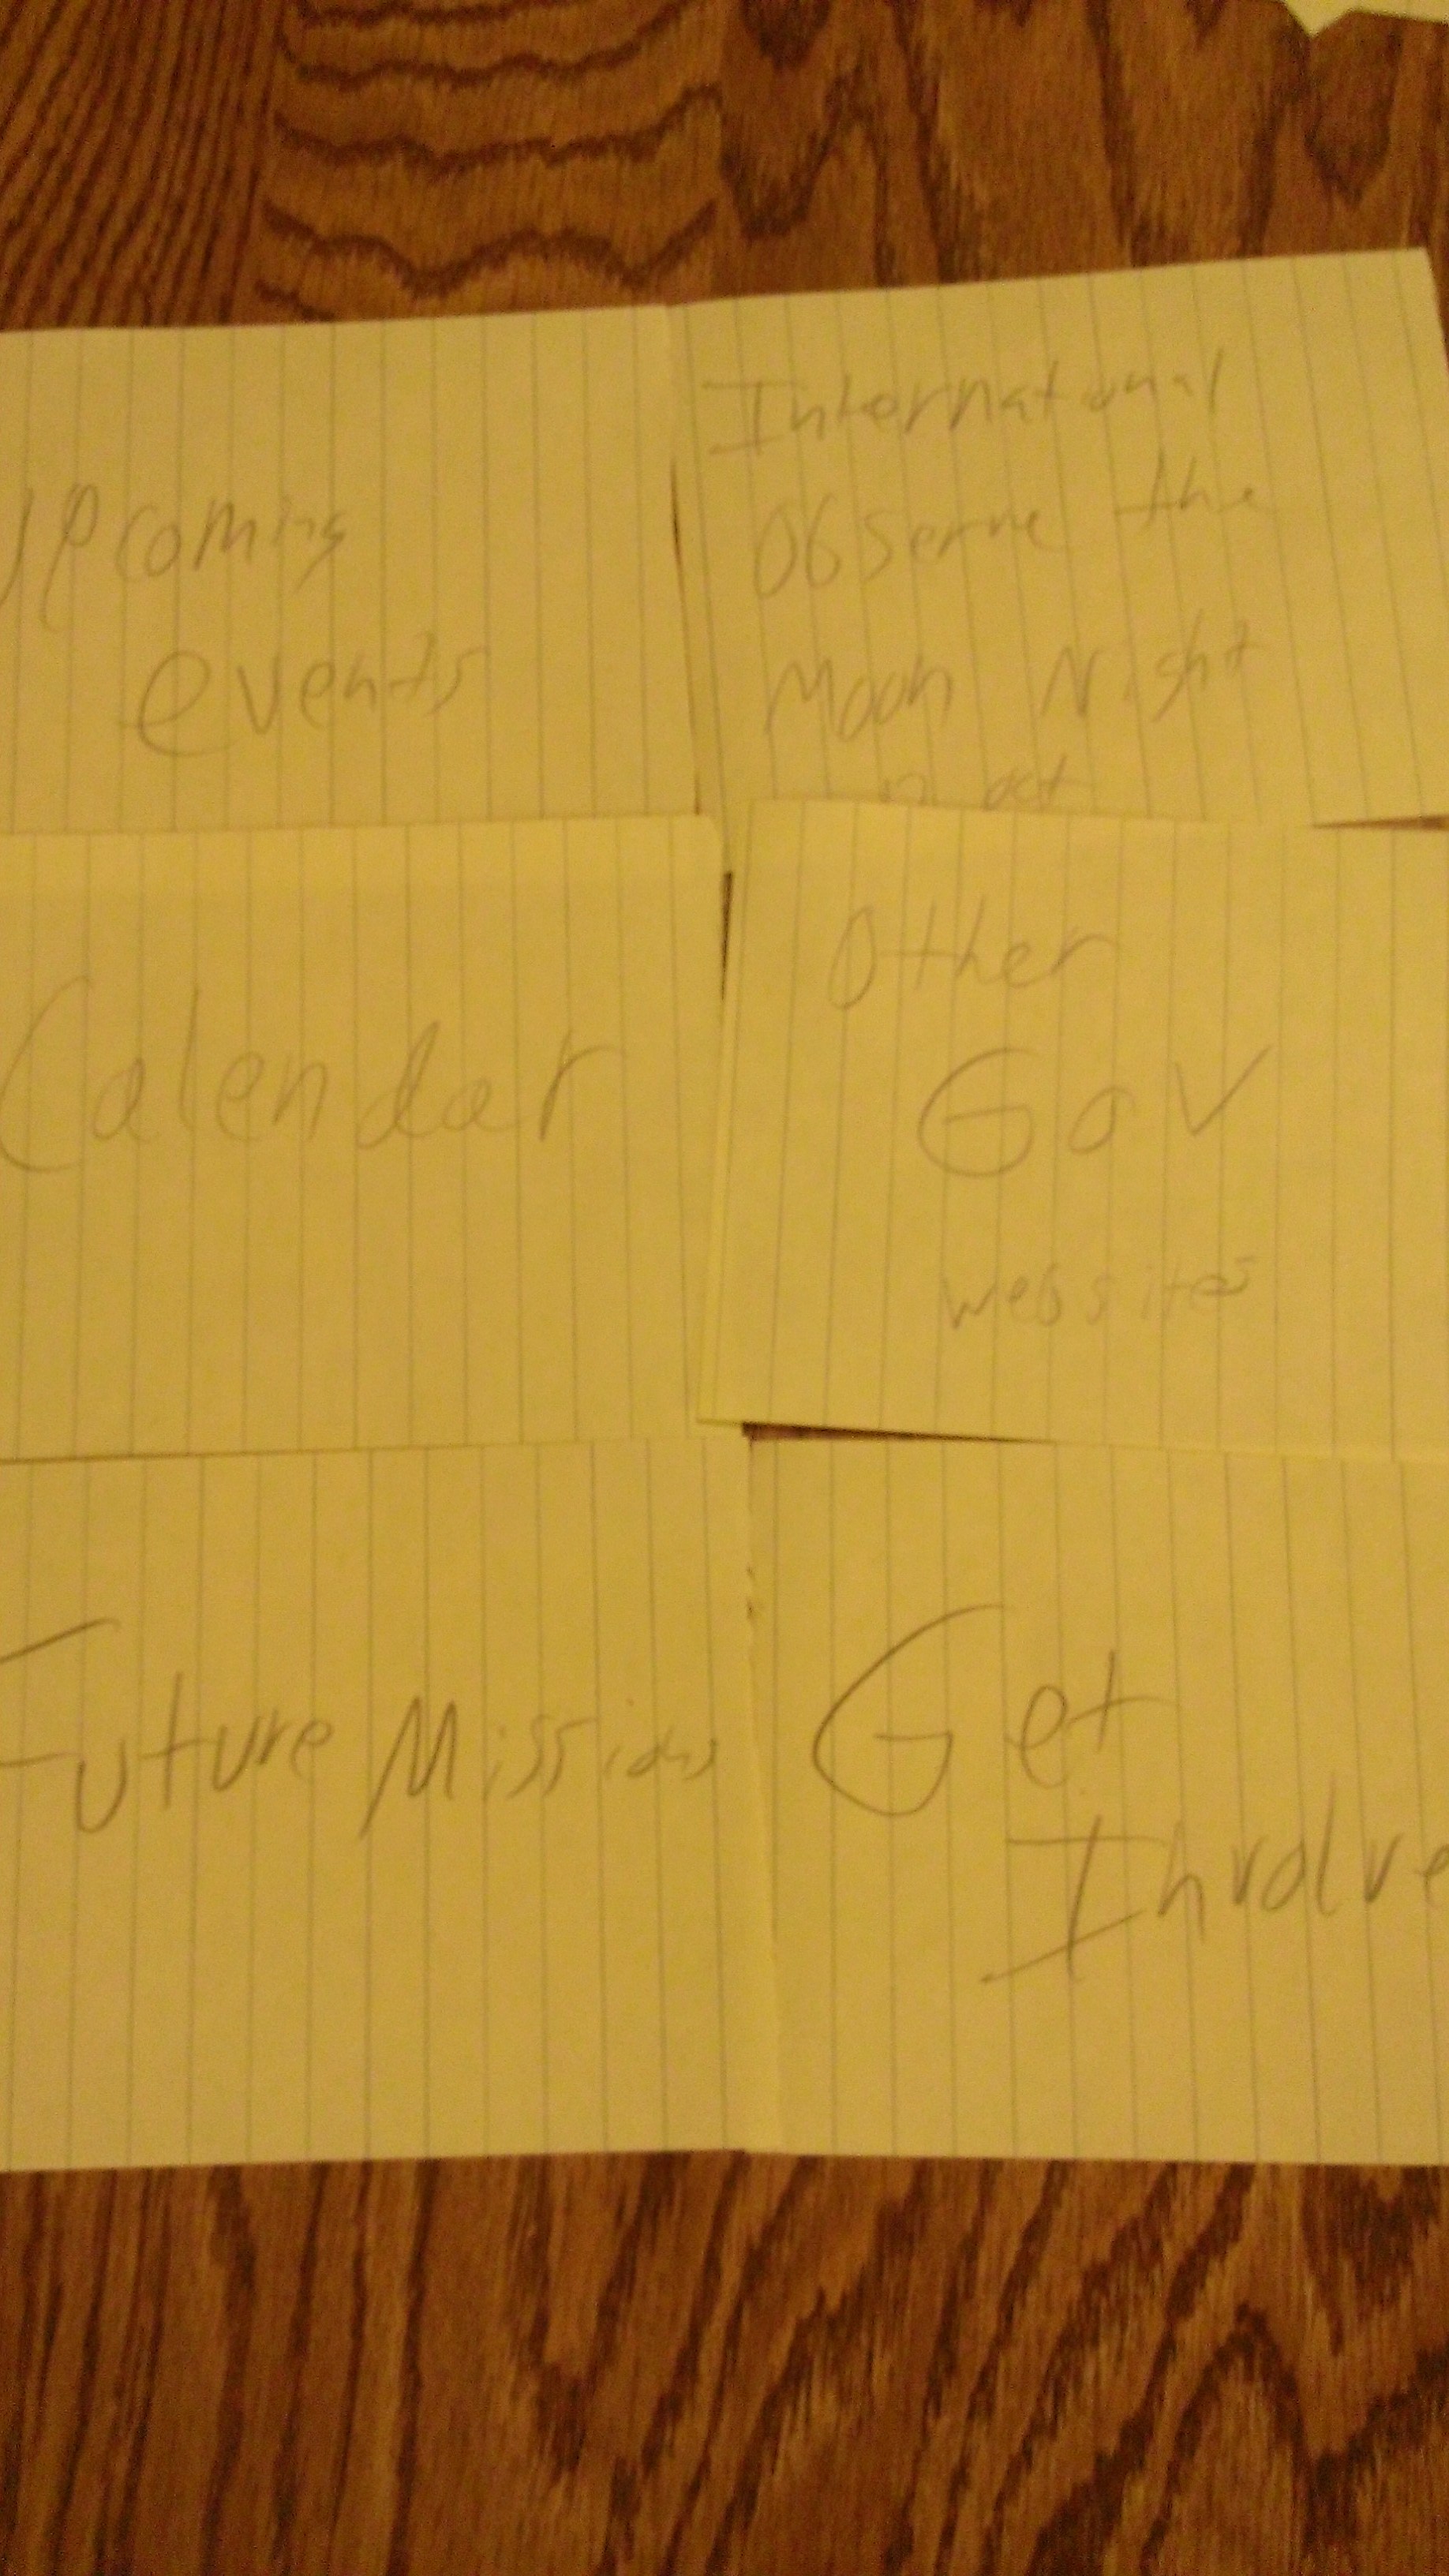 Upcoming
events
International
Observe the
Moon Night
oct
Calendar
Other
Gov
websites
Future Missions
Get
Involve